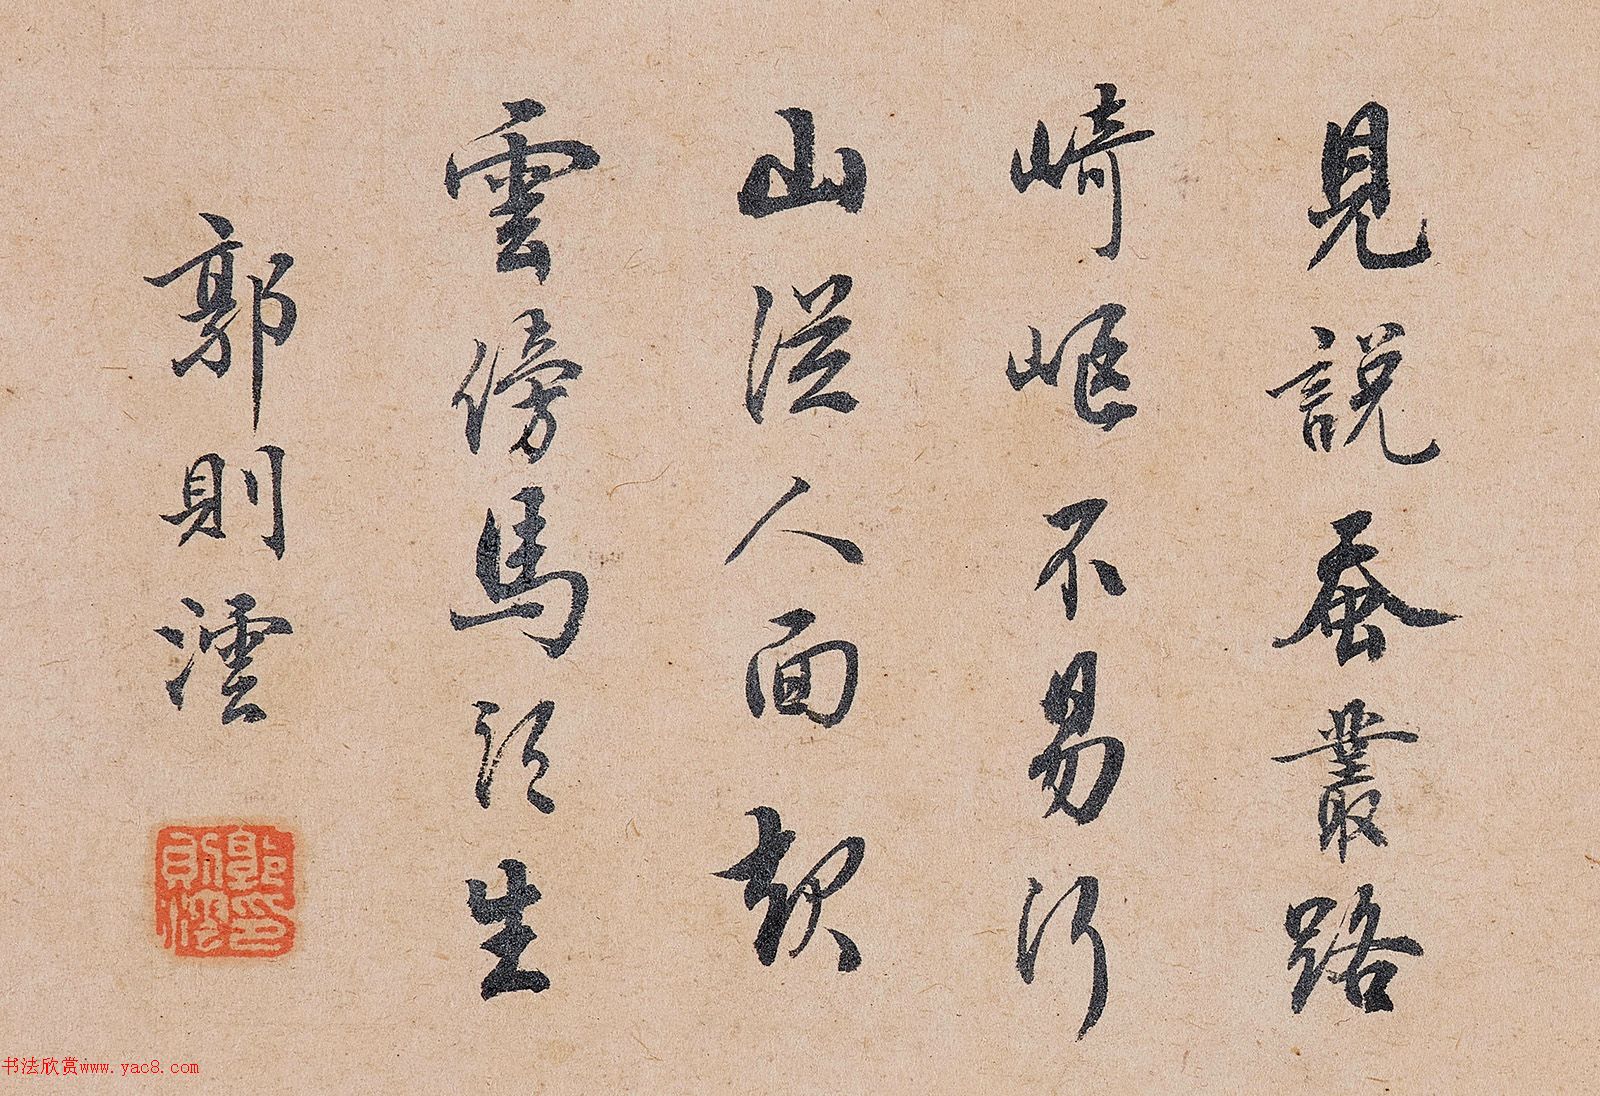 見說蚕叢路
崎嶇不易行
山從人面起
雲傍馬頭生
郭則澐
郭印則澐
书法欣赏www.yac8.com